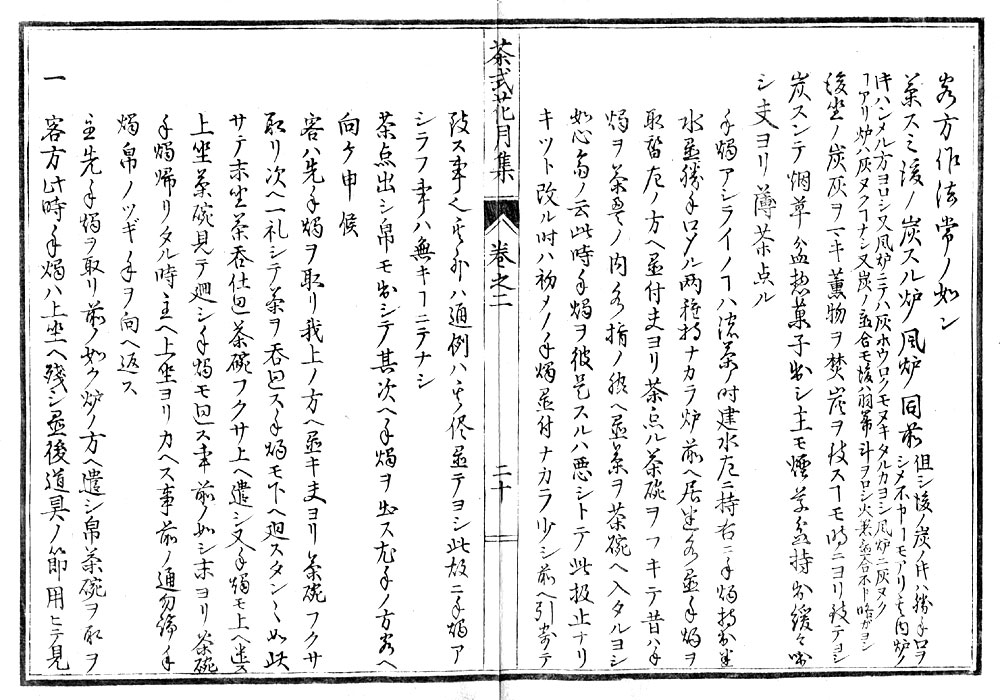 客方作法常ノ如シ
菓スミ後ノ炭スル炉風炉同前 但シ後ノ炭ノ片ハ勝手口ヲ
片ハシメル方ヨロシ又風炉ニテハ灰ホウロクモヌキタルカヨシ風炉ニ灰ヌク
コアリ炉ハ灰ヌクコナシ又炭ノ置合モ後ハ羽箒斗ヲロシ火箸置合不申
後坐ノ炭灰ヲマキ薫物ヲ焚炭ヲ コモ時ニヨリ致テヨシ
炭スンテ烟草盆惣菓子出シ主モ煙草盆持出緩々咄
シ夫ヨリ薄茶点ル
手燭アシライノコハ濃茶ノ时建水左ニ持右ニ手燭持出
勝手口 両種持ナカラ炉前ヘ居 手燭ヲ
取替左ノ方ヘ置付夫ヨリ茶点ル茶碗ヲフキテ昔ハ手
燭ヲ茶 ノ内 指ノ ヘ置茶ヲ茶碗ヘ入タルヨシ
如心斎ノ云此時手燭ヲ彼是スルハ悪シトテ此扱止ナリ
キツト改ル时ハ初メノ手燭置付ナカラ少シ前ヘ引寄テ
茶式花月集 卷之二 二十
致ス事也 外ハ通例ハ其侭置テヨシ此故ニ手燭ア
シラフ事ハ無キコニテナシ
茶点出シ帛モ出シテ其次ヘ手燭ヲ出ス左手ノ方客ヘ
向ケ申候
客ハ先手燭ヲ取リ我上ノ方ヘ置キ夫ヨリ茶碗フクサ
取リ次ヘ一礼シテ茶ヲ呑廻ス手燭モ下ヘ廻スタン〳〵如此
サテ末坐茶呑仕廻茶碗フクサ上ヘ遣シ又手燭モ上ヘ
上坐茶碗見テ廻シ手燭モ廻ス事前ノ如シ末ヨリ茶碗
手燭帰リタル時主ヘ上坐ヨリカヘス事前ノ通勿論手
燭帛ノツギ手ヲ向ヘ返ス
主先手燭ヲ取リ前ノ如ク炉ノ方ヘ遣シ帛茶碗ヲ取ヲ
一 客方此時手燭ハ上坐ヘ残シ置後道具ノ節用ヒテ見